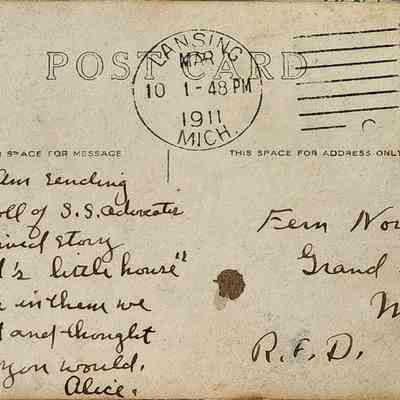 POST CARD
LANSING
MAR
10 1-48 PM
1911
MICH.
SPACE FOR MESSAGE
THIS SPACE FOR ADDRESS ONLY
am sending
oll of S.S. Advocates
story
's little house"
in them we
and thought
you would.
Alice.
Fern
Grand
R.F.D.